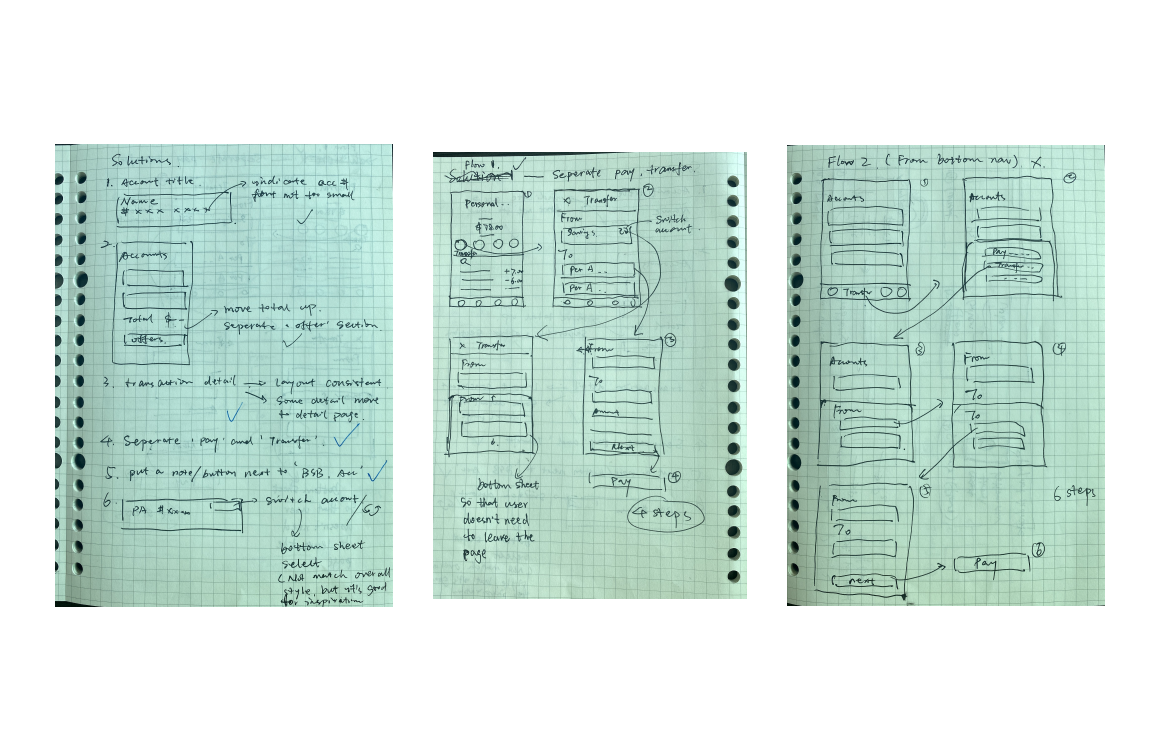 Solutions.
1. Account title.
Name
# x x x  x x x x
indicate acc #
font not too small
2.
Accounts
Total $--
offers.
move total up.
seperate 'offer' section.
3. transaction detail
Layout consistent
Some detail move
to detail page.
4. Seperate 'pay' and 'Transfer'.
5. put a note/button next to 'BSB. Acc'
6.
PA
switch account/
bottom sheet
select
(Not match overall
style, but it's good
for inspiration
Flow 1.
Solution 1 — Seperate pay. transfer.
①
Personal..
Transfer
②
x Transfer
From
To
Per A..
Per A..
Switch
account.
x Transfer
From
From
bottom sheet
so that user
doesn't need
to leave the
page
③
From
To
Next
Pay ④
4 steps
Flow 2 (From bottom nav) X.
①
Accounts
Transfer
②
Accounts
Pay --
Transfer --
③
Accounts
From
④
From
To
To
⑤
From
To
next
Pay ⑥
6 steps